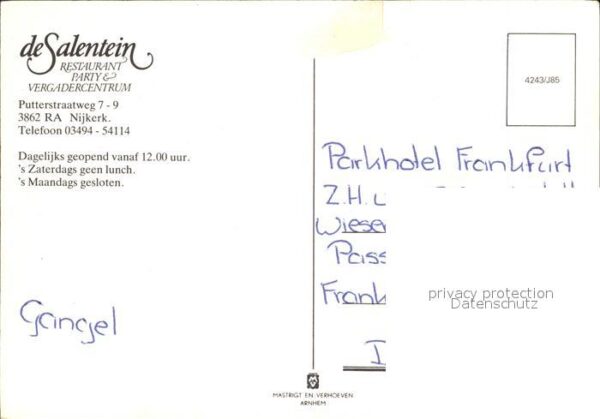 de Salentein
RESTAURANT
PARTY &
VERGADERCENTRUM
Putterstraatweg 7 - 9
3862 RA Nijkerk.
Telefoon 03494 - 54114
Dagelijks geopend vanaf 12.00 uur.
's Zaterdags geen lunch.
's Maandags gesloten.
Gangel
4243/J85
Parkhotel Frankfurt
Z.H.
Wiesen
Pass
Frank
privacy protection
Datenschutz
MASTRIGT EN VERHOEVEN
ARNHEM